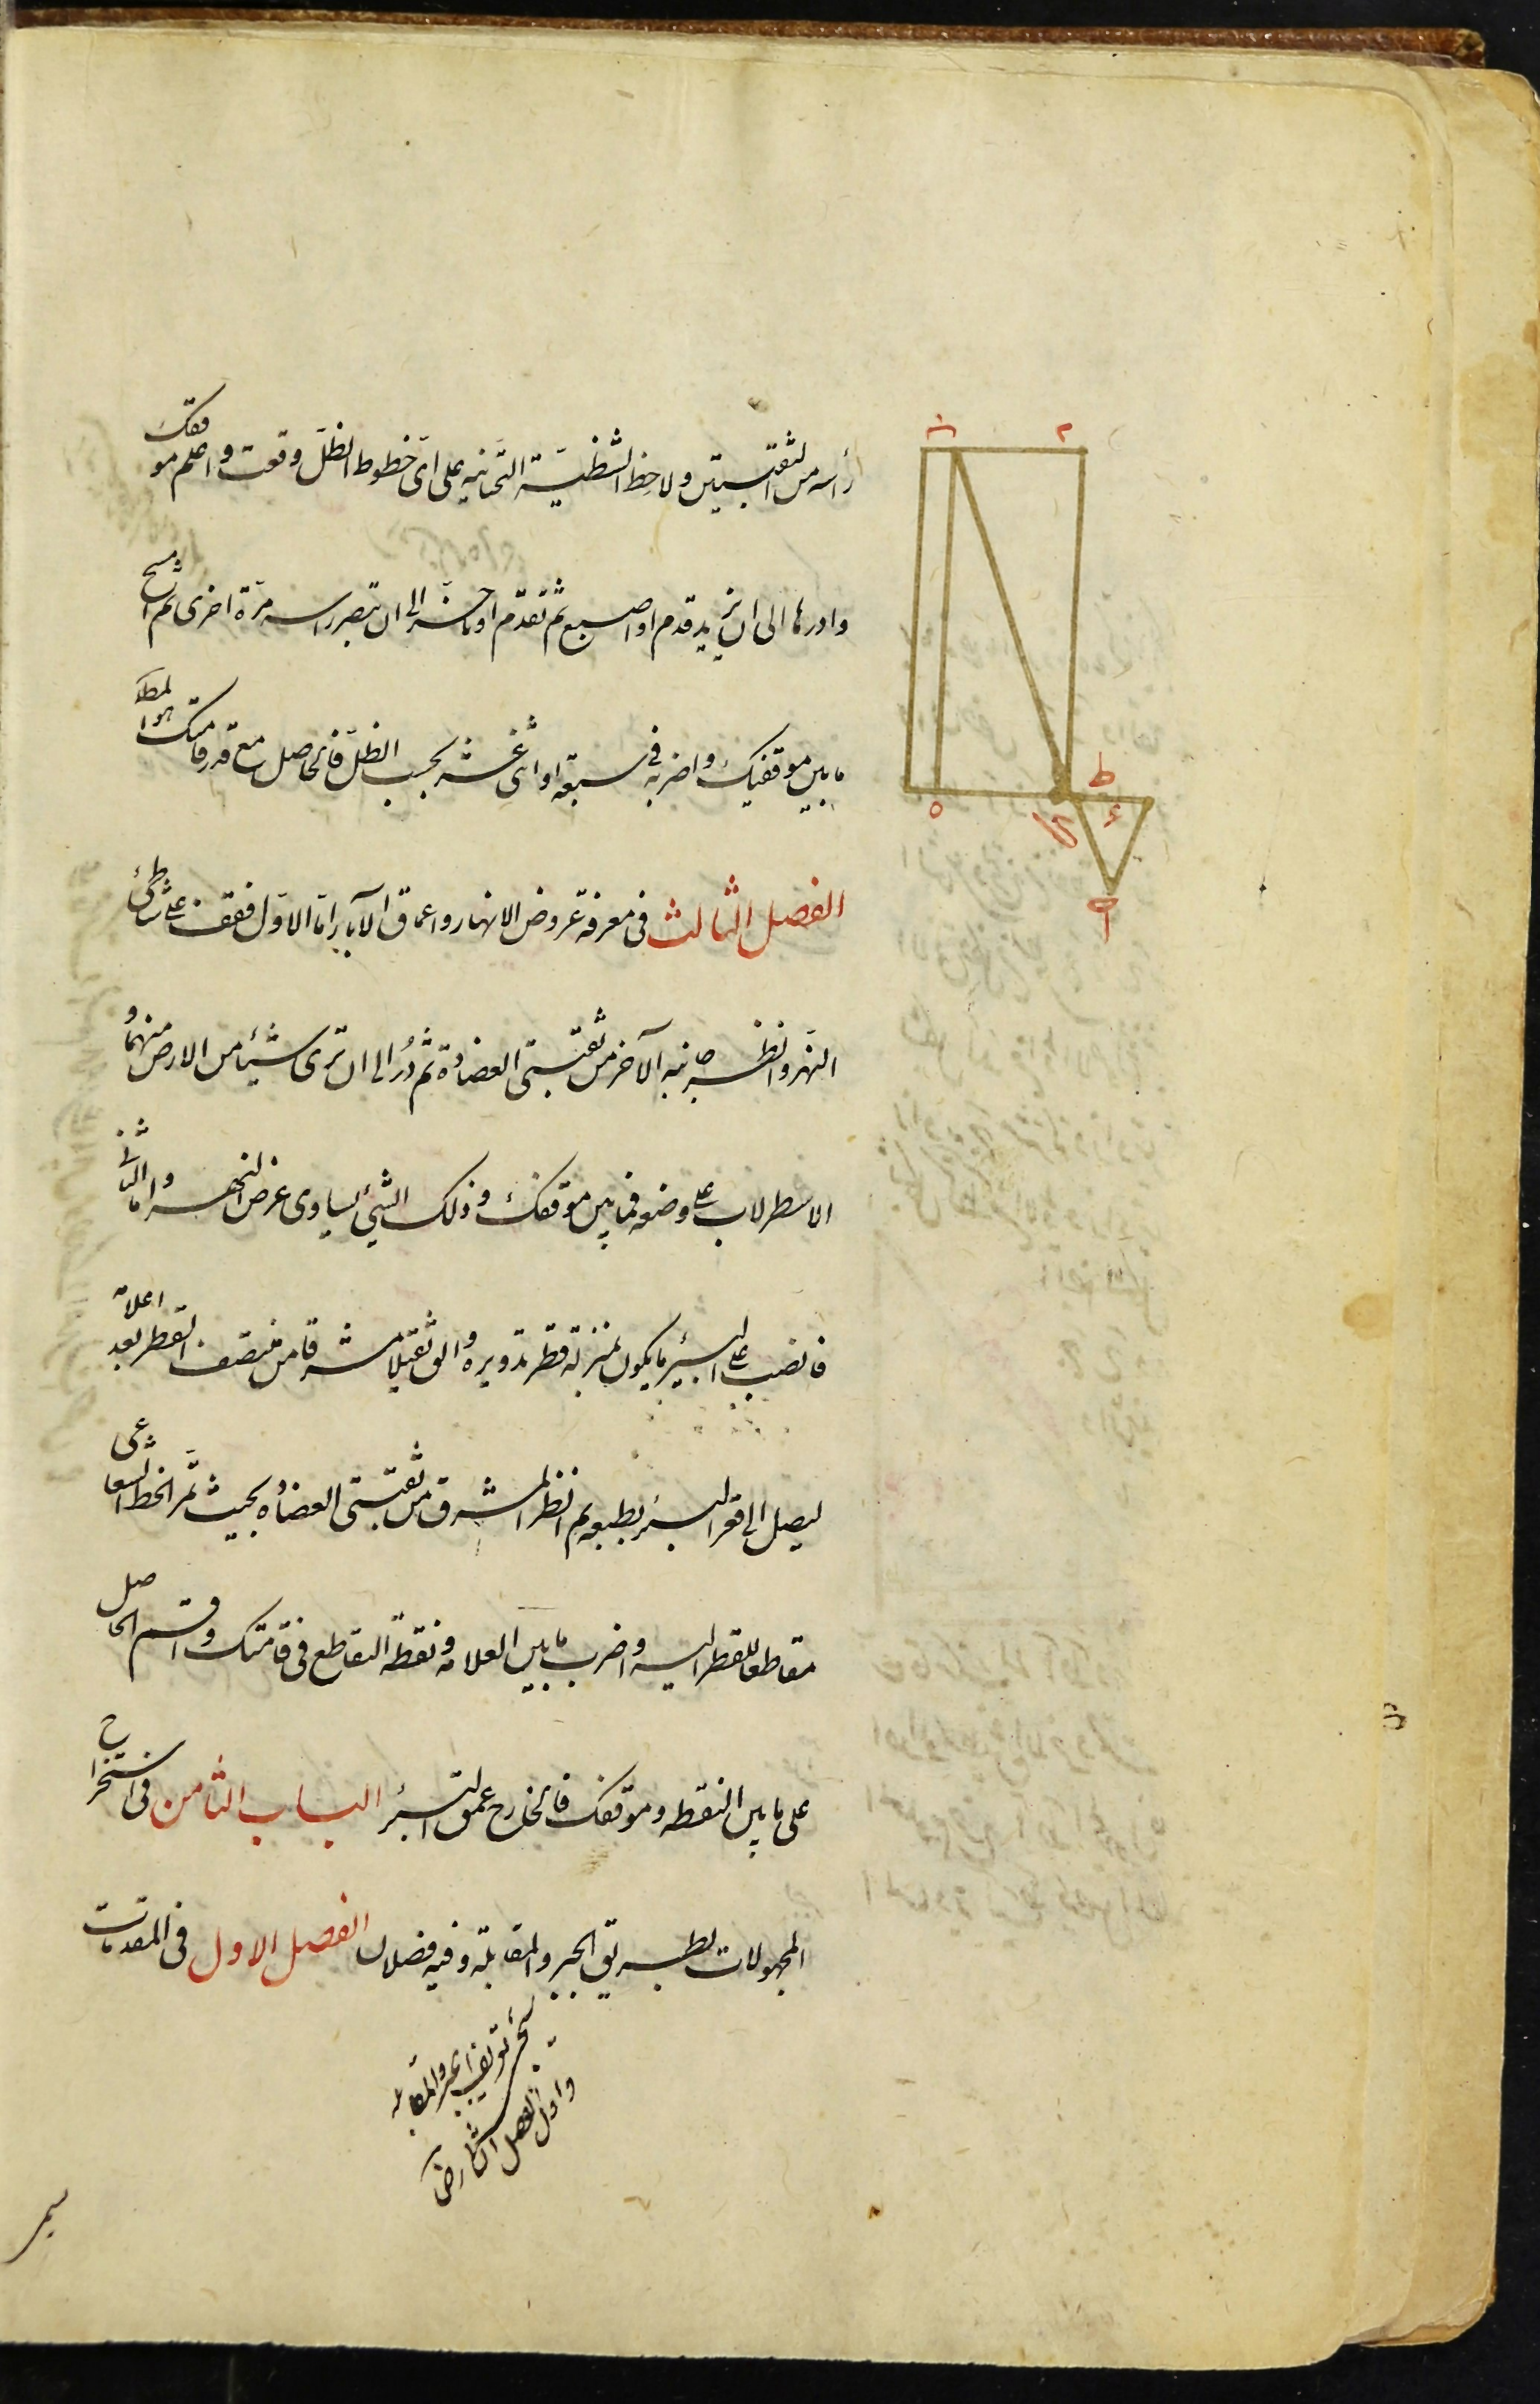 رأسه من الثقبتين ولاحظ الشظية التحتانية على اىّ خطوط الظلّ وقعت واعلم موقفك
وادرها الى ان يزيد قدم او اصبع ثم تقدّم او تاخّر الى ان تبصر راسه مرّة اخرى ثم امسح
ما بين موقفيك واضربه فى سبعة او اثنى عشر بحسب الظلّ فالحاصل مع قدر قامتك هو المط
الفصل الثالث فى معرفة عروض الانهار واعماق الآبار امّا الاوّل فقف على شاطئ
النهر وانظر جانبه الآخر من ثقبتى العضادة ثم دُر الى ان ترى شيئا من الارض منهما و
الاسطرلاب على وضعه فما بين موقفك وذلك الشئ يساوى عرض النهر واما الثانى
فانصب على البئر ما يكون بمنزلة قطر تدويره والق ثقيلا مشرقا من منتصف القطر بعد اعلامه
ليصل الى قعر البئر بطبعه ثم انظر المشرق من ثقبتى العضادة بحيث تمرّ الخط الشعاعى
مقاطعا للقطر اليه واضرب ما بين العلامة ونقطة التقاطع فى قامتك واقسم الحاصل
على ما بين النقطه وموقفك فالخارج عمق البئر الباب الثامن فى استخراج
المجهولات بطريق الجبر والمقابلة وفيه فصلان الفصل الاول فى المقدمات
ح
ط
ه
ء